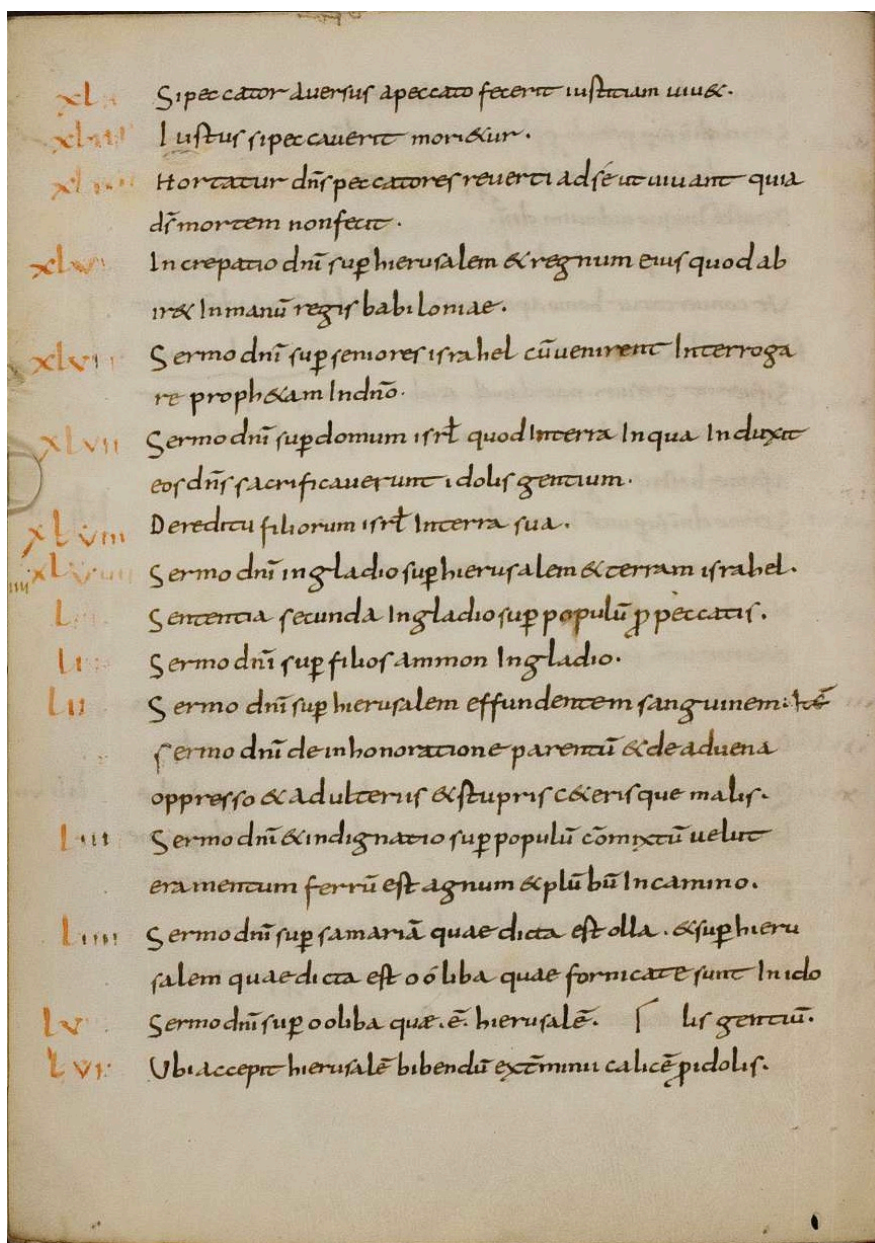 Si peccator aversus a peccato fecerit iustitiam viv&.
Iustus si peccaverit mori&ur.
Hortatur dn̄s peccatores reverti ad se ut vivant quia
d̄s mortem non fecit.
Increpatio dn̄i sup̄ hierusalem & regnum eius quod ab
ir& In manū regis babiloniae.
Sermo dn̄i sup̄ seniores israhel cū venirent Interroga
re proph&am In dn̄o.
XLVII Sermo dn̄i sup̄ domum isrł quod In terra In qua Induxit
eos dn̄s sacrificaverunt idolis gentium.
XLVIII De reditu filiorum isrł In terra sua.
Sermo dn̄i in gladio sup̄ hierusalem & terram israhel.
L Sententia secunda In gladio sup̄ populū p̄ peccatis.
LI Sermo dn̄i sup̄ filios ammon In gladio.
LII Sermo dn̄i sup̄ hierusalem effundentem sanguinem. Itē
sermo dn̄i de inhonoratione parentū & de advena
oppresso & adulteriis & stupris c&erisque malis.
LIII Sermo dn̄i & indignatio sup̄ populū cōmixtū velut
eramentum ferrū est agnum & plūbū In camino.
LIIII Sermo dn̄i sup̄ samariā quae dicta est olla. & sup̄ hieru
salem quae dicta est ooliba quae fornicate sunt In ido
LV Sermo dn̄i sup̄ ooliba quæ.ē. hierusalē. lis gentiū.
LVI Ubi accepit hierusalē bibendū extēminii calicē p̄ idolis.